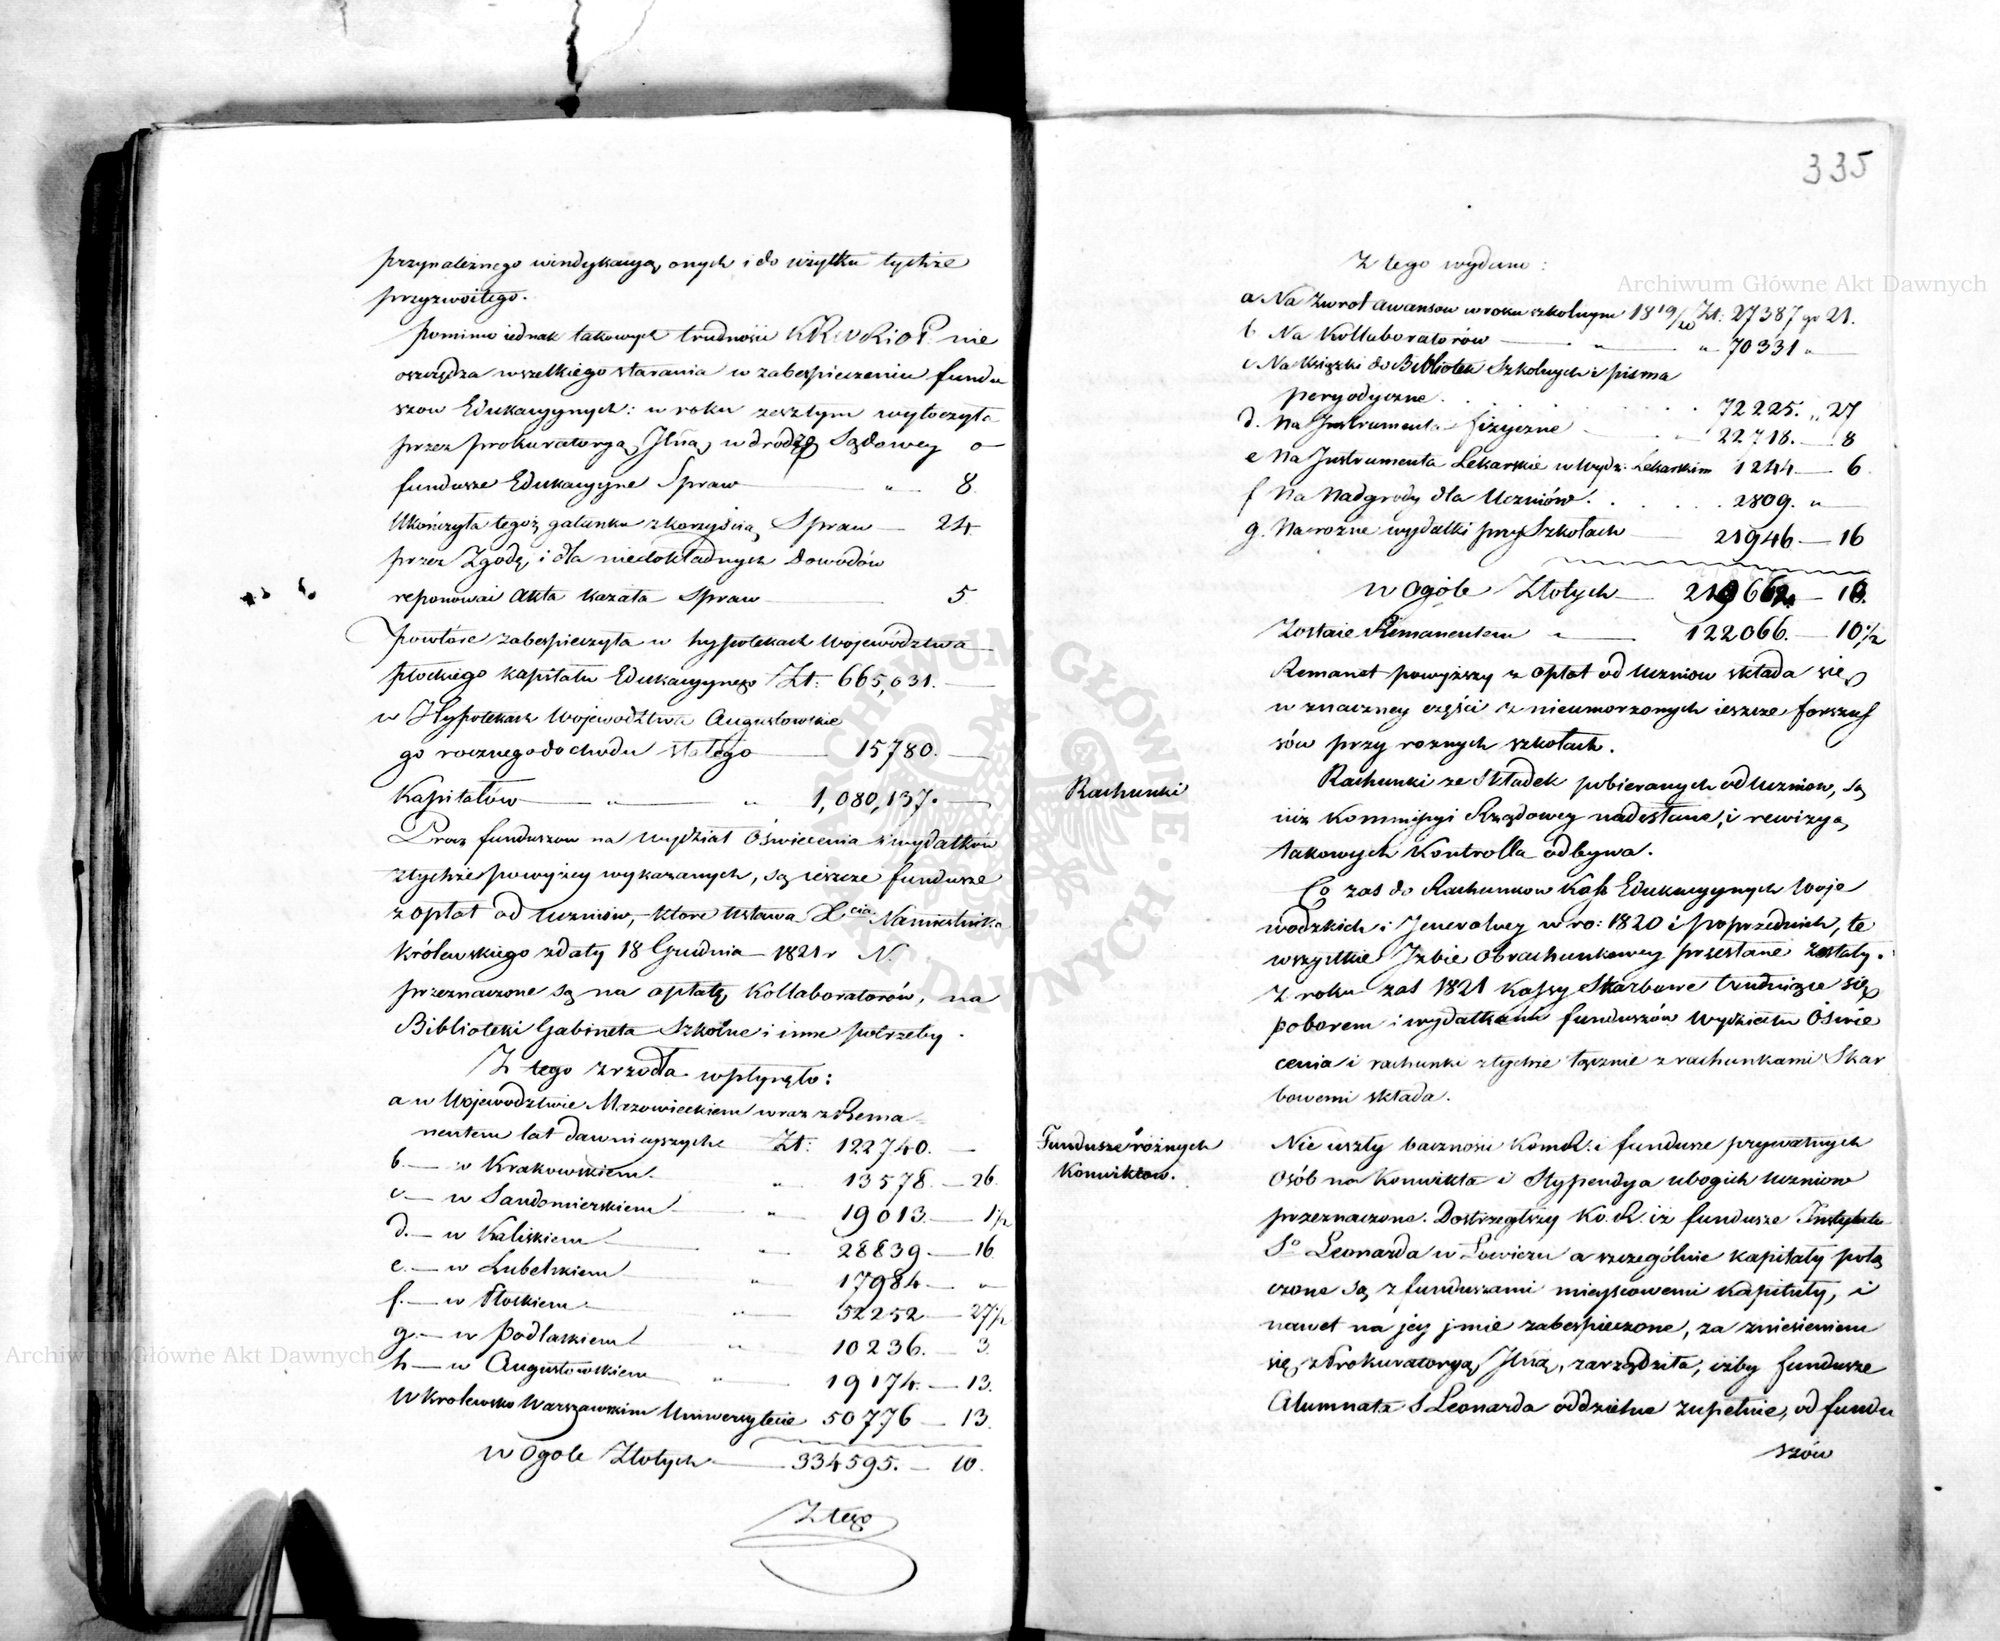 przynależnego windykacyą onych i do użytku tychże
przyzwoitego.
Pomimo iednak takowych trudności KR. W R i O P. nie
oszczędza wszelkiego starania w zabespieczeniu fundu
szow Edukacyynych: w roku zeszłym wytoczyła
przez Prokuratoryą Jlną w drodze Sądowey o
fundusze Edukacyyne Spraw — " — 8
Ukończyła tegoż gatunku z korzyścią Spraw — 24
przez Zgodę i dla niedokładnych dowodów
reponować Akta kazała Spraw — 5
Powtóre zabespieczyła w hypotekach Województwa
płockiego kapitału Edukacyynego Zł: 665,031. —
w Hypotekach Województwa Augustowskie
go rocznego dochodu stałego — 15780. —
Kapitałów — " — " — 1,080,137. —
Prócz funduszow na Wydział Oświecenia i wydatków
z tychże powyżey wykazanych, są ieszcze fundusze
z opłat od Uczniów, które Ustawa Xcia Namiestnika
Królewskiego z daty 18 Grudnia 1821 r N.
przeznaczone są na opłatę Kollaboratorów, na
Biblioteki Gabineta Szkolne i inne potrzeby.
Z tego zrzódła wpłynęło:
a w Województwie Mazowieckiem wraz z Rema
nentem lat dawnieyszych Zł: 122740. —
b. — w Krakowskiem " — 13578. — 26.
c — w Sandomierskiem — " — 19013. — 1/2
d. — w Kaliskiem — " — 28839 — 16
e. — w Lubelskiem — " — 17984 — "
f. — w Płockiem — " — 52252 — 27 1/2
g. — w Podlaskiem — " — 10236. — 3.
h — w Augustowskiem — " — 19174. — 13.
W Krolewsko Warszawskim Uniwersytecie 50776 — 13.
w Ogole Złotych — 334595. — 10.
Z tego
335
Z tego wydano:
a Na Zwrot awansow w roku szkolnym 1819/20 Zł: 27387 gr 21.
b Na Kollaboratorów — " — " 70331 "
c Na Książki do Bibliotek Szkolnych i pisma
peryodyczne . . . 72225. " 27
d. Na Instrumenta fizyczne — 22718. — 8
e Na Instrumenta Lekarskie w Wydz: Lekarskim 1244 — 6
f Na Nadgrody dla Uczniów . . . . 2809. " —
g. Na rozne wydatki przy Szkołach — 21946 — 16
w Ogóle Złotych — 218662 — 18.
Zostaie Remanentem " — 122066. — 10 1/2
Remanent powyższy z opłat od Uczniow składa się
w znaczney części z nieumorzonych ieszcze forszus
sów przy roznych szkołach.
Rachunki
Rachunki ze Składek pobieranych od Uczniow, są
iuż Kommissyi Rządowey nadesłane, i rewizyą
takowych Kontrolla odbywa.
Co zas do Rachunkow Kass Edukacyynych Woje
wodzkich i Jeneralney w ro: 1820 i poprzednich, te
wszystkie Izbie Obrachunkowey przesłane zostały.
Z roku zas 1821 Kassy Skarbowe trudniące się
poborem i wydatkami funduszów Wydziału Oświe
cenia i rachunki z tychże łącznie z rachunkami Skar
bowemi składa.
Fundusze różnych
Konwiktow.
Nie uszły baczności Kom R. i fundusze prywatnych
Osób na Konwikta i Stypendya ubogich Uczniow
przeznaczone. Dostrzegłszy Ko. R. iż fundusze Instytutu
So Leonarda w Łowiczu a szczególnie kapitały połą
czone są z funduszami mieyscowemi Kapituły, i
nawet na jey jmie zabespieczone, za zniesieniem
się z Prokuratoryą Jlną, zarządziła, iżby fundusze
Alumnata S Leonarda oddzielne zupełnie, od fundu
szów
Archiwum Główne Akt Dawnych
Archiwum Główne Akt Dawnych
ARCHIWUM GŁÓWNE AKT DAWNYCH